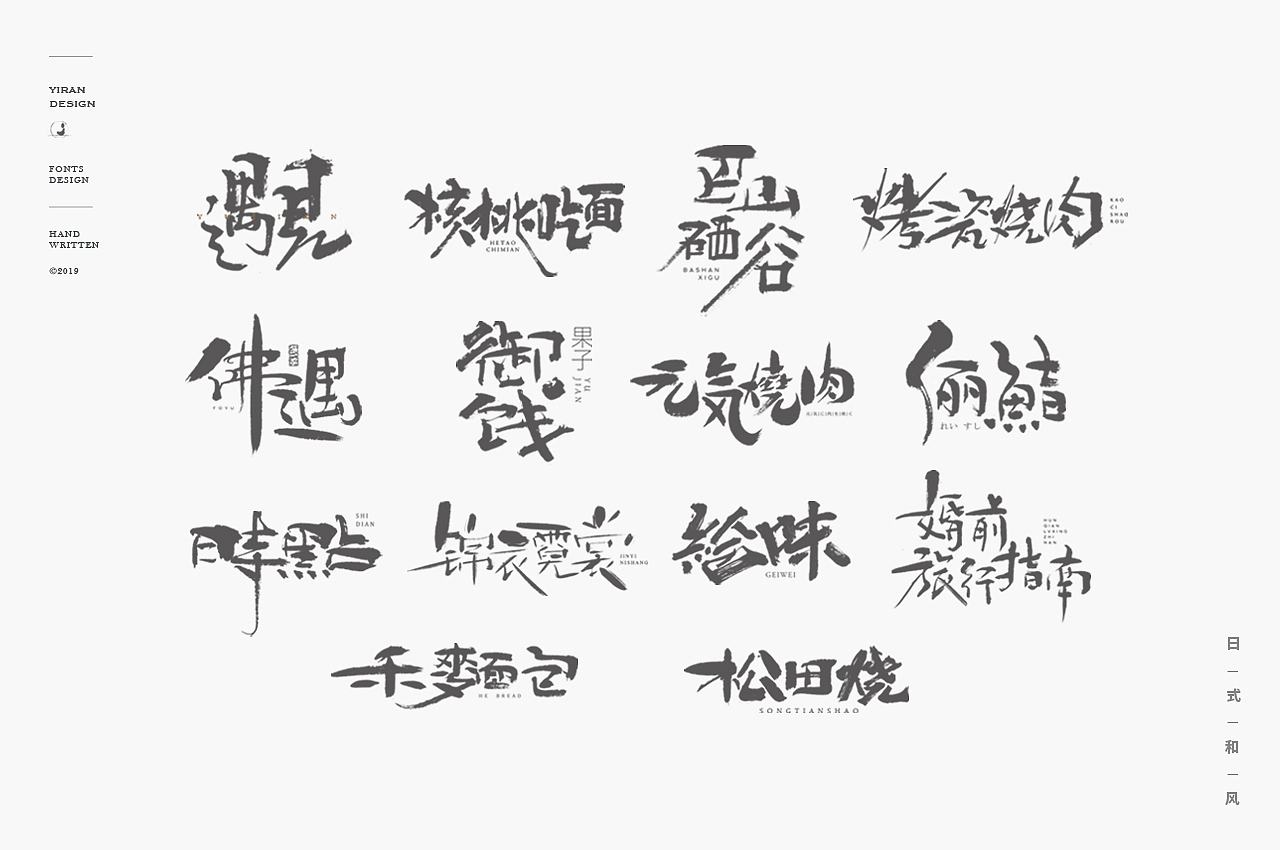 YIRAN
DESIGN
FONTS
DESIGN
HAND
WRITTEN
©2019
遇見
核桃吃面
HETAO
CHIMIAN
巴山
硒谷
BASHAN
XIGU
烤瓷烧肉
KAO
CI
SHAO
ROU
佛遇
FOYU
御
饯
果子
YU
JIAN
元気燒肉
俪鮨
れい すし
時點
SHI
DIAN
锦衣霓裳
JINYI
NISHANG
給味
GEIWEI
婚前
旅行指南
HUN
QIAN
LVXING
ZHI
NAN
禾麵包
HE BREAD
松田烧
SONGTIANSHAO
日—式—和—风